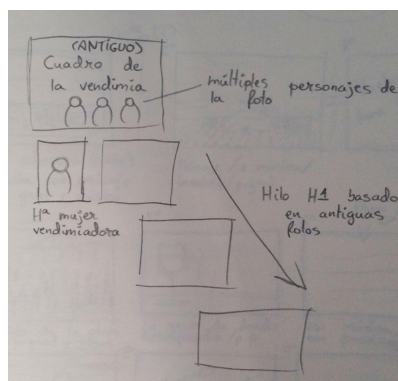 (ANTIGUO)
Cuadro de
la vendimia
múltiples personajes de
la foto
Hª mujer
vendimiadora
Hilo H1 basado
en antiguas
fotos